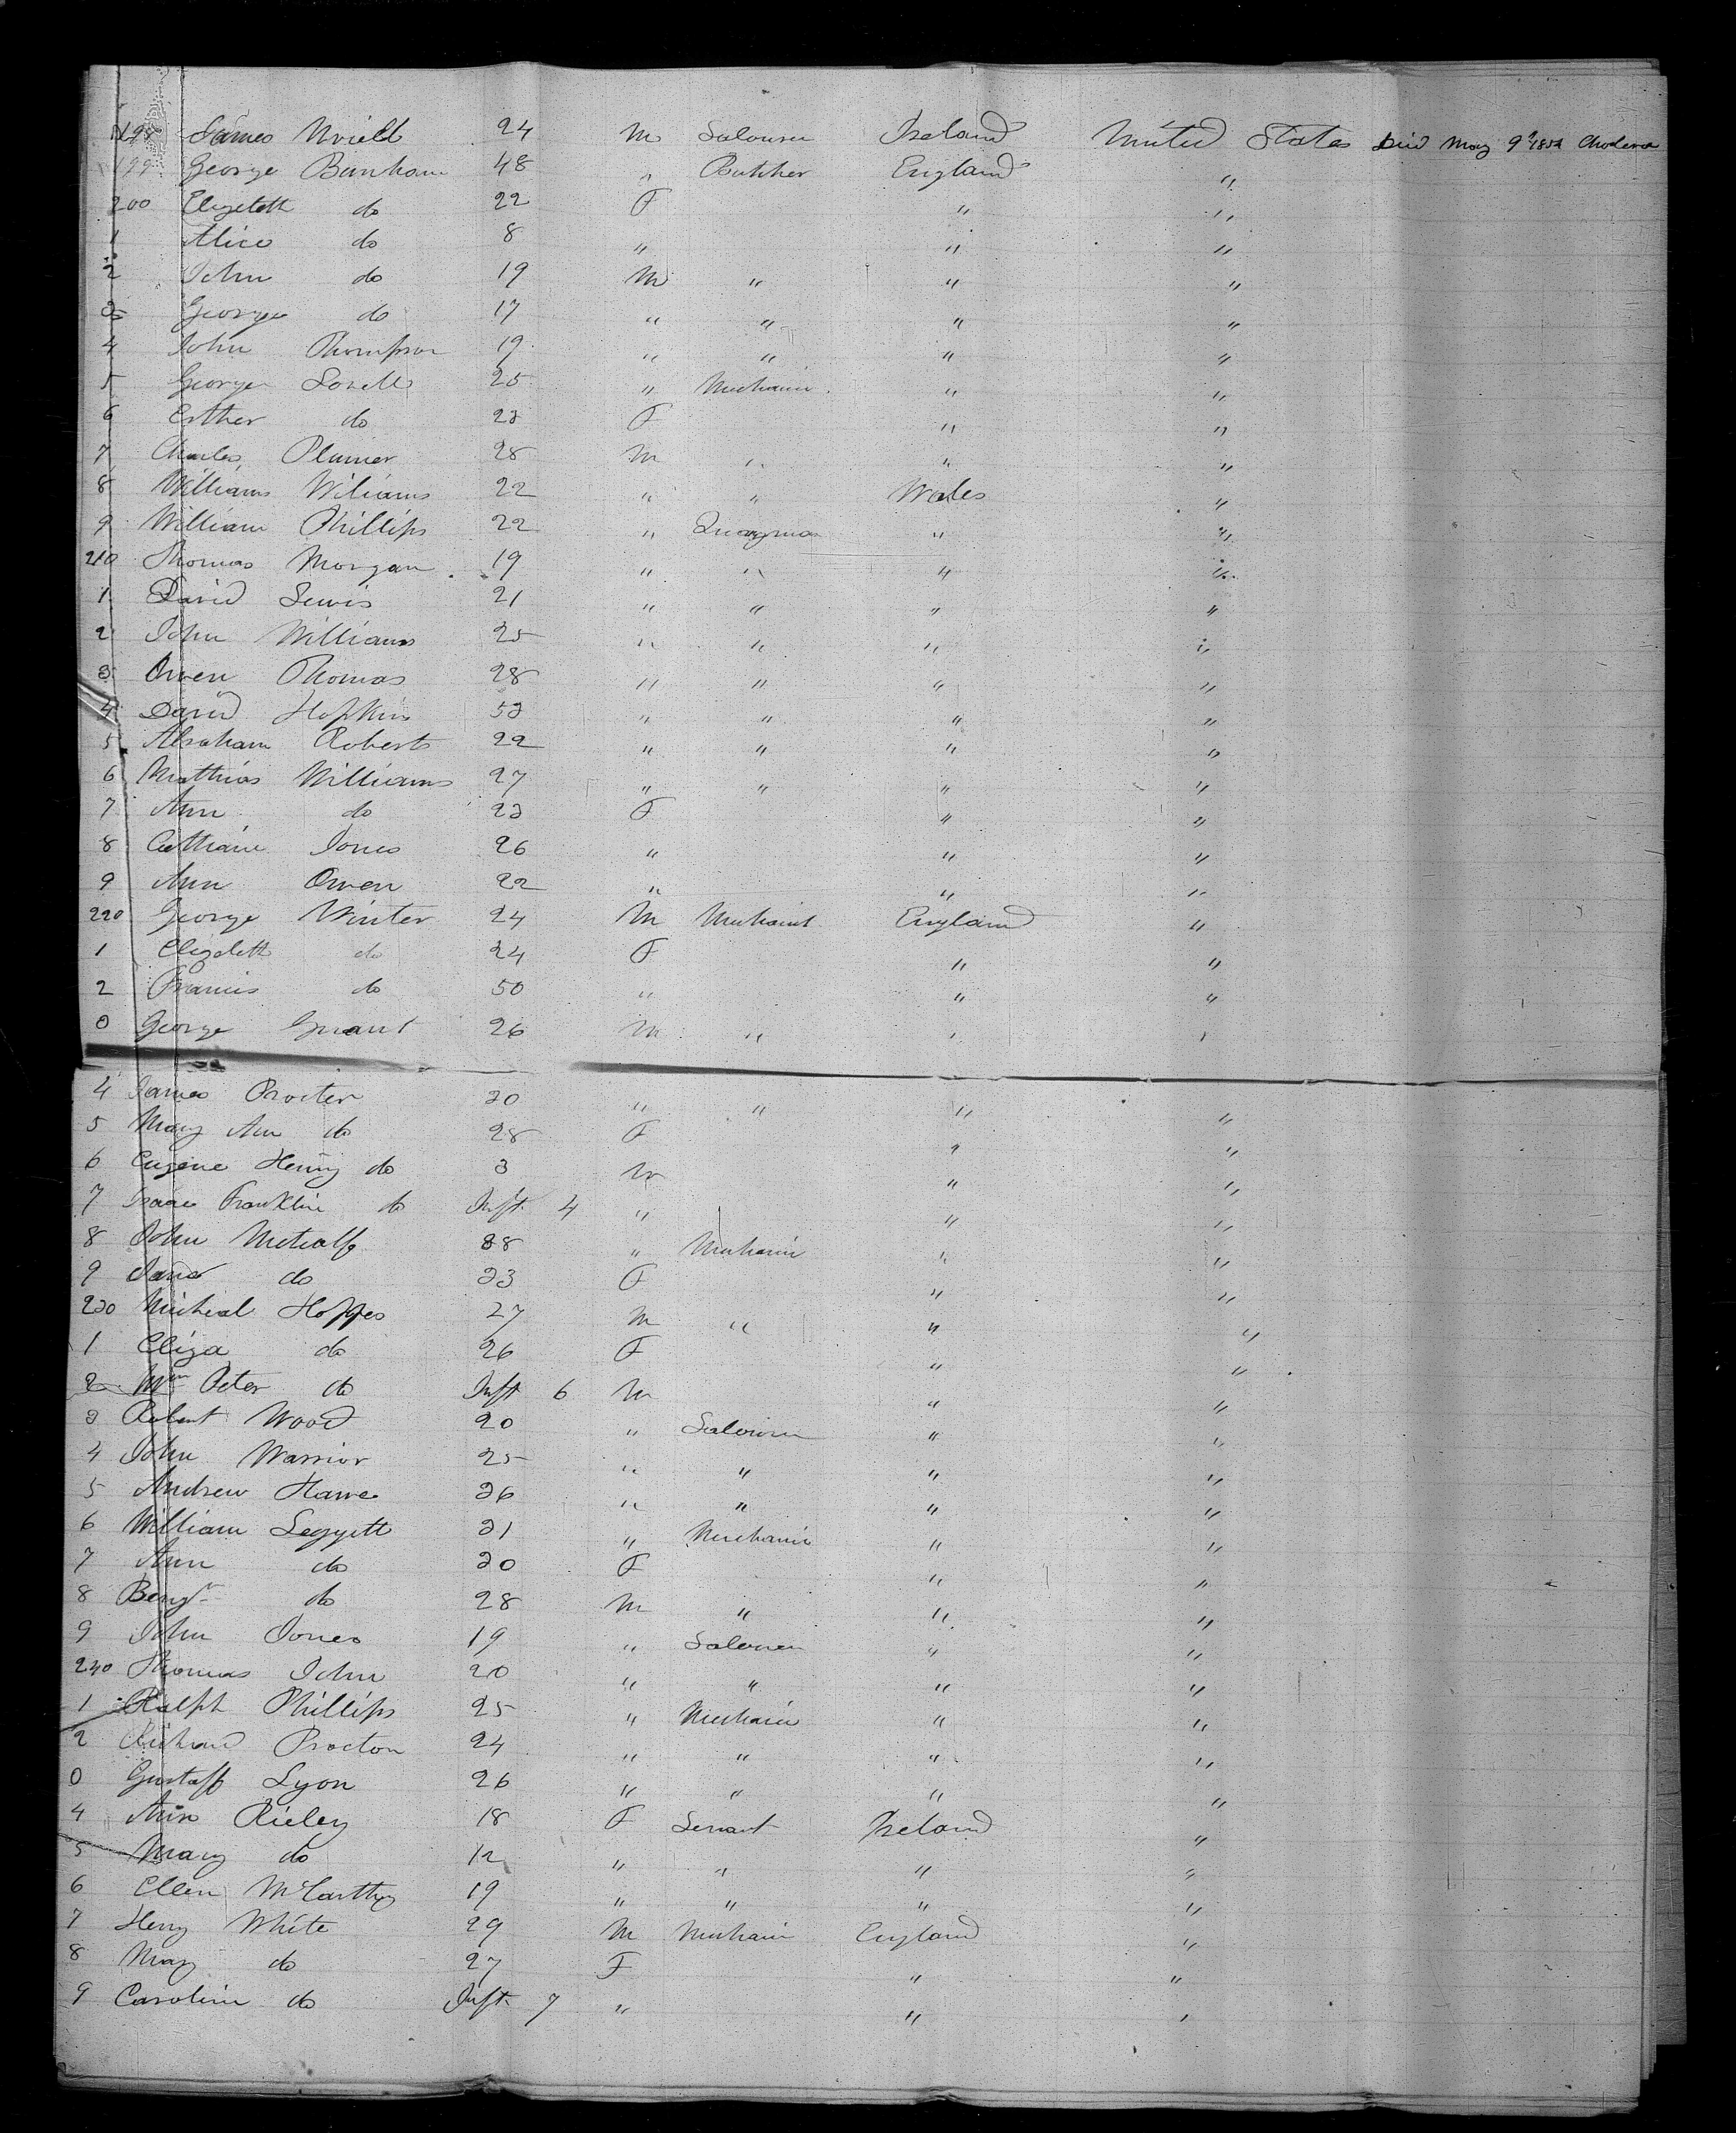 198 James 24 M Labourer Ireland United States Died May 9th 1854 Cholera
199 George Banham 48 " Butcher England "
200 Elizabeth do 22 F " "
1 Alice do 8 " " "
2 John do 19 M " " "
3 George do 17 " " " "
4 John Thompson 19 " " " "
5 George Lovell 25 " Mechanic " "
6 Esther do 23 F " "
7 Charles Plumer 28 M " " "
8 Williams Wiliams 22 " " Wales "
9 William Phillips 22 " " "
210 Thomas Morgan 19 " " " "
1 David Lewis 21 " " " "
2 John Williams 25 " " " "
3 Owen Thomas 28 " " " "
4 David Hopkins 53 " " " "
5 Abraham Roberts 22 " " " "
6 Matthias Williams 27 " " " "
7 Ann do 23 F " "
8 Jones 26 " " "
9 Ann Owen 22 " " "
220 George Winter 24 M England "
1 Elizabeth do 24 F " "
2 Francis do 50 " " "
3 George Grant 26 M " " "
4 James Procter 30 " " " "
5 Mary Ann do 28 F " "
6 Eugene Henry do 3 M " "
7 Isaac Franklin do Inft 4 " " "
8 John Metcalfe 38 " Mechanic " "
9 Jane do 33 F " "
230 Micheal Hoppes 27 M " " "
1 Eliza do 26 F " "
2 Wm Peter do Inft 6 M " "
3 Robert Wood 20 " Labourer " "
4 John Warrior 25 " " " "
5 Andrew Hawe 36 " " " "
6 William Leggett 31 " Mechanic " "
7 Ann do 30 F " "
8 Benjn do 28 M " " "
9 John Jones 19 " Labourer " "
240 Thomas John 20 " " " "
1 Ralph Phillips 25 " Mechanic " "
2 Richard Procton 24 " " " "
3 Gustaff Lyon 26 " " " "
4 Ann Rieley 18 F Servant Ireland "
5 Mary do 12 " " " "
6 Ellen McCarthy 19 " " " "
7 Henry White 29 M Mechanic England "
8 Mary do 27 F " "
9 Caroline do Inft 7 " " "